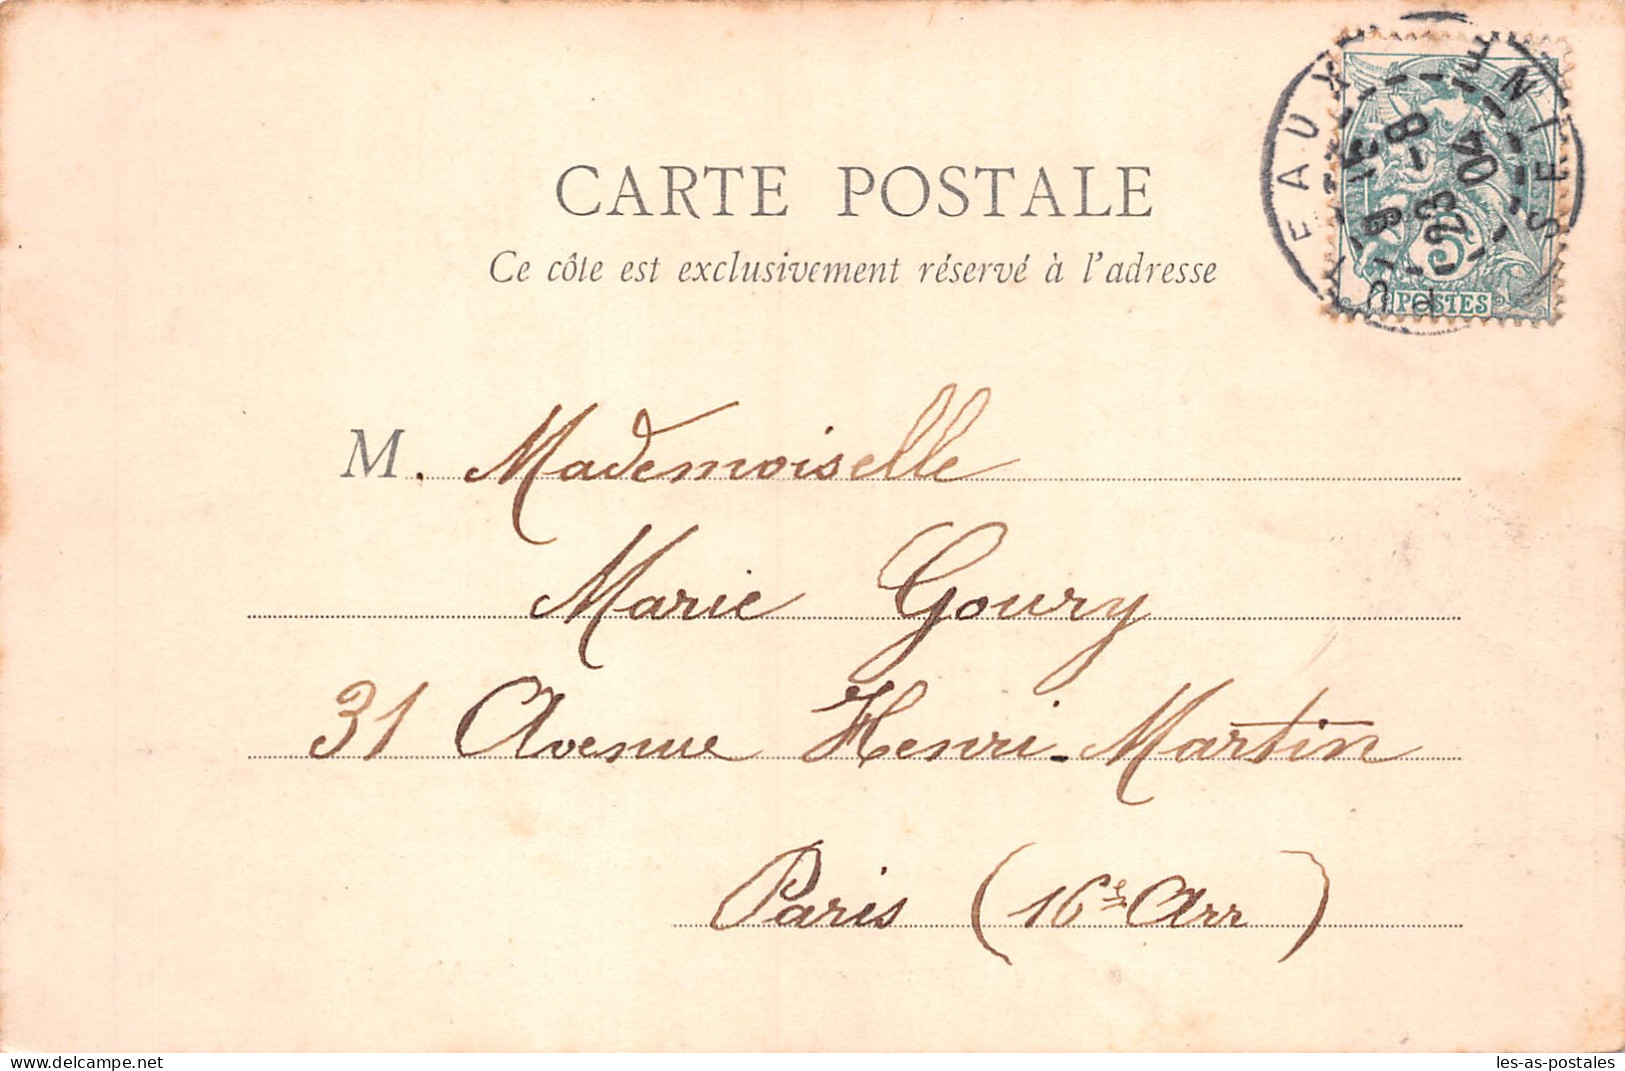 CARTE POSTALE
Ce côte est exclusivement réservé à l'adresse
PUTEAUX SEINE
8
23
04
5
POSTES
M. Mademoiselle
Marie Goury
31 Avenue Henri-Martin
Paris (16e Arr)
delcampe.net
les-as-postales